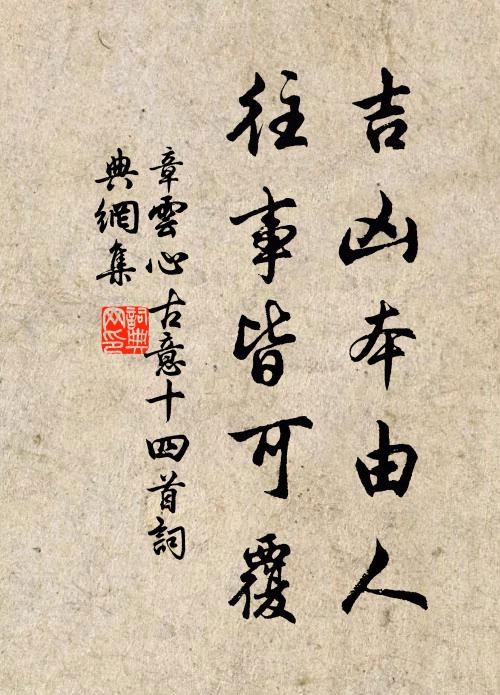 吉凶本由人
往事皆可覆
章雲心古意十四首詞
典網集
詞典
网印